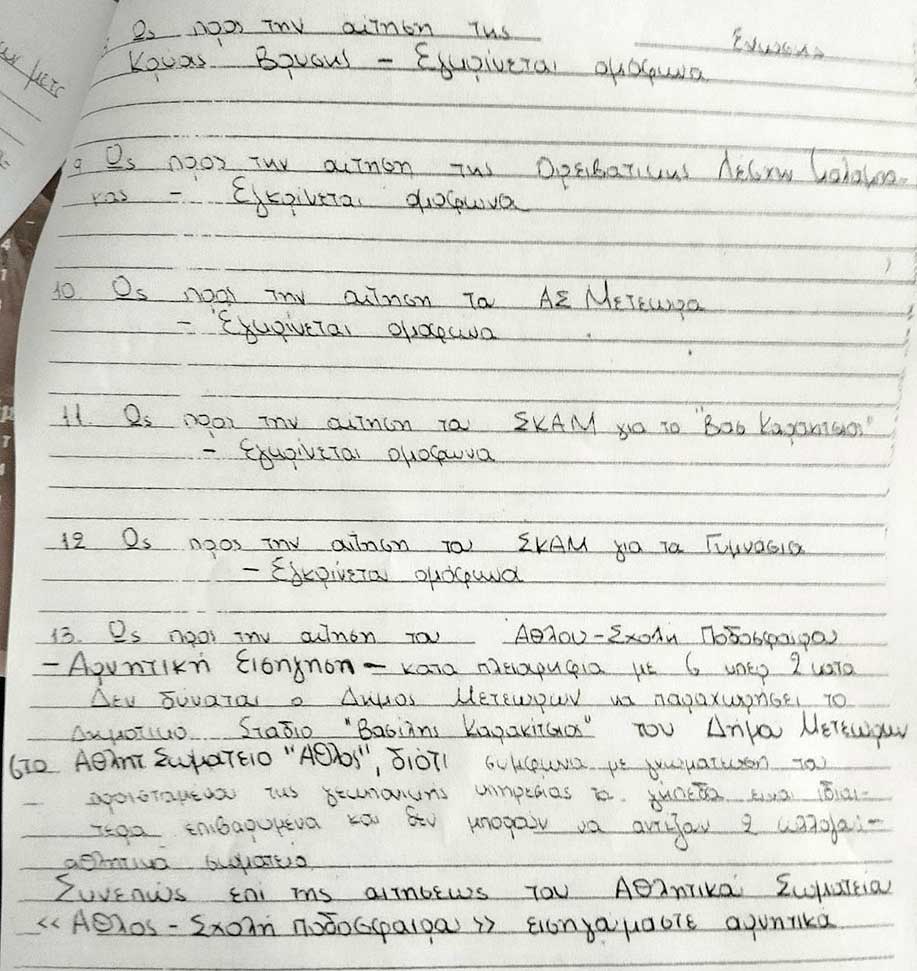 Ως προς την αίτηση της Ενωσης
Κρύας Βρυσης - Εγκρίνεται ομόφωνα
9 Ως προς την αιτηση της Ορειβατικης Λέσχη Καλαμπα-
κας - Εγκρίνεται ομόφωνα
10. Ως προς την αιτηση του ΑΣ Μετεωρα
- Εγκρίνεται ομόφωνα
11. Ως προς την αιτηση του ΣΚΑΜ για το "Βασ Καρακιτσιοι"
- Εγκρίνεται ομοφωνα
12 Ως προς την αιτηση του ΣΚΑΜ για τα Γυμνασια
- Εγκρίνεται ομόφωνα
13. Ως προς την αιτηση του Αθλου-Σχολη Ποδοσφαιρου
- Αρνητική Εισηγηση - κατα πλειοψηφία με 6 υπερ 2 κατα
Δεν δύναται ο Δημος Μετεωρων να παραχωρήσει το
Δημοτικο Σταδιο "Βασιλης Καρακιτσιος" του Δήμου Μετεωρων
στο Αθλητ Σωματειο "Αθλος", διότι συμφωνα με γνωματευση του
- προισταμενου της γεωπονικης υπηρεσιας τα γήπεδα ειναι ιδιαι-
τερα επιβαρυμένα και δεν μπορούν να αντεξουν 2
αθλητικα σωματεια
Συνεπώς επι της αιτησεως του Αθλητικού Σωματείου
<< Αθλος - Σχολή ποδοσφαιρου >> εισηγούμαστε αρνητικά